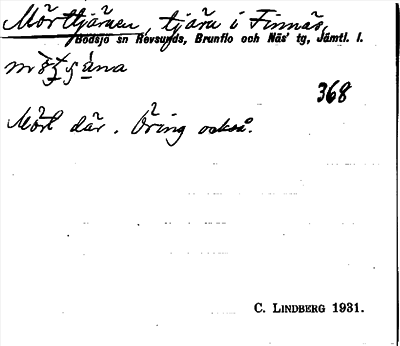 Mörttjärnen, tjärn i Finnäs,
Bodsjö sn Revsunds, Brunflo och Näs' tg, Jämtl. l.
368
Mört där. Öring också.
C. LINDBERG 1931.